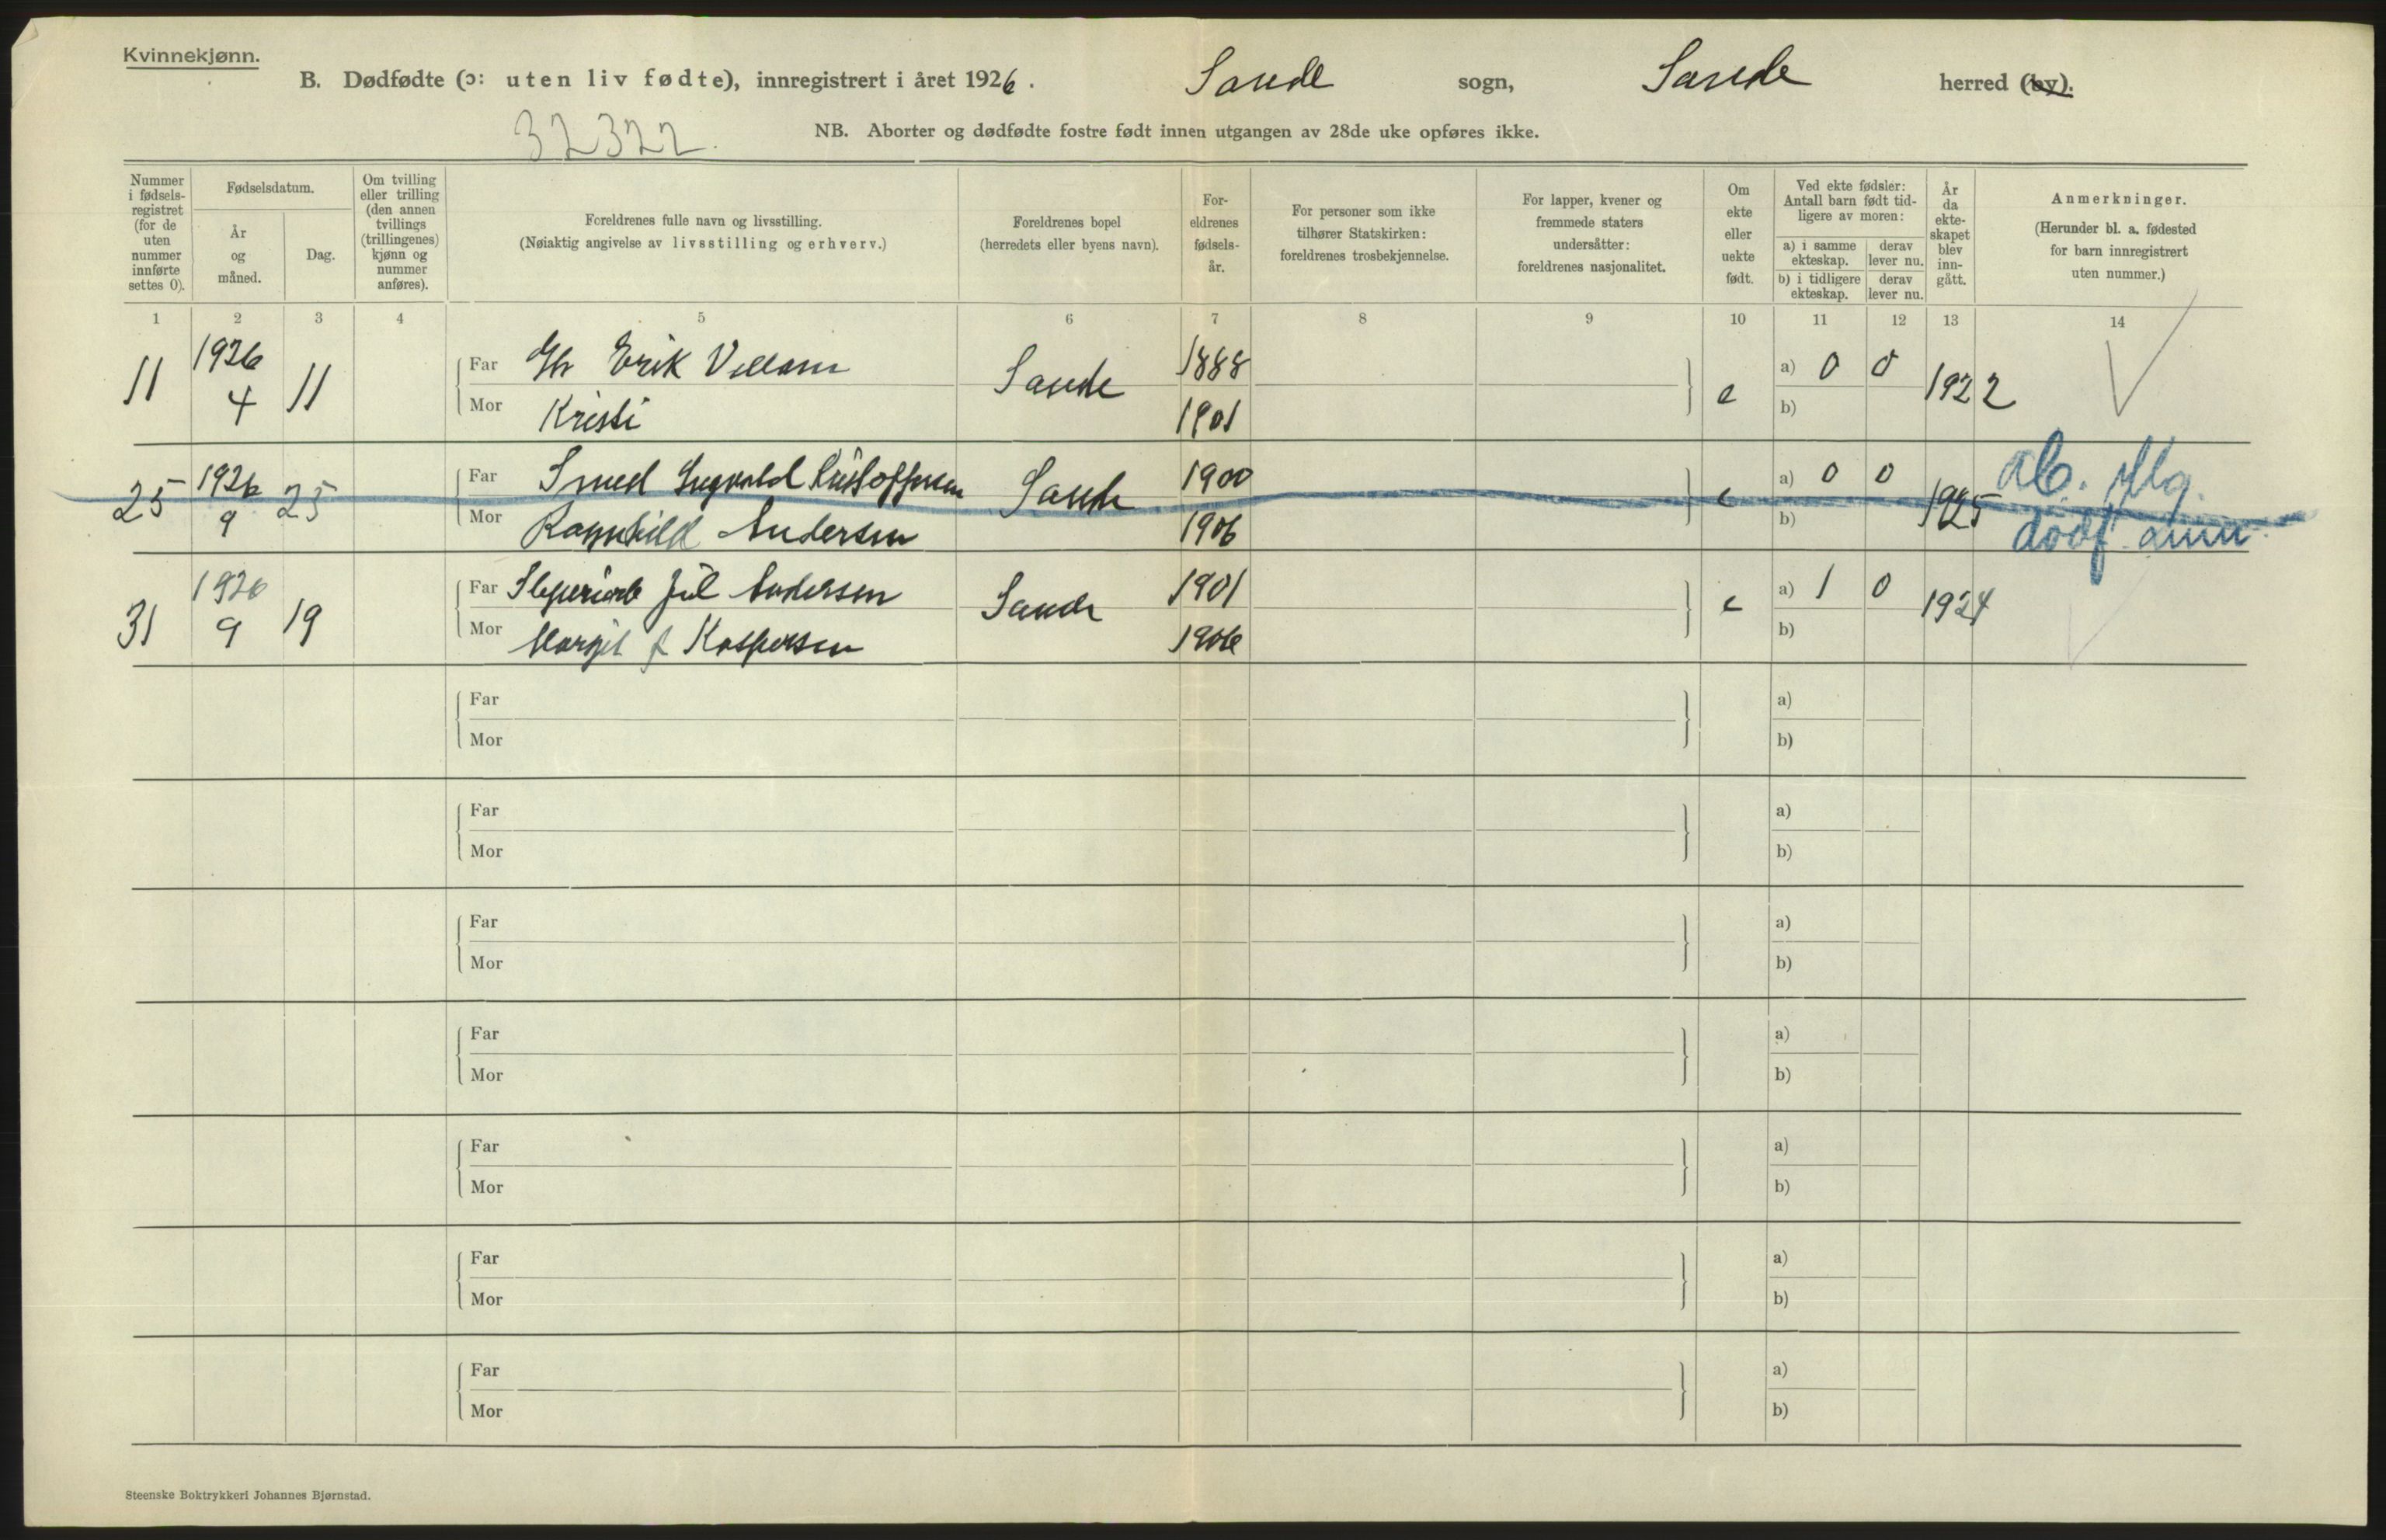 Kvinnekjønn.
B. Dødfødte (ɔ: uten liv fødte), innregistrert i året 1926. Sande sogn, Sande herred (by).
32322.
NB. Aborter og dødfødte fostre født innen utgangen av 28de uke opføres ikke.
Nummer i fødsels-registret (for de uten nummer innførte settes 0).
Fødselsdatum.
År og måned.
Dag.
Om tvilling eller trilling (den annen tvillings (trillingenes) kjønn og nummer anføres).
Foreldrenes fulle navn og livsstilling.
(Nøiaktig angivelse av livsstilling og erhverv.)
Foreldrenes bopel
(herredets eller byens navn).
For-eldrenes fødsels-år.
For personer som ikke tilhører Statskirken: foreldrenes trosbekjennelse.
For lapper, kvener og fremmede staters undersåtter: foreldrenes nasjonalitet.
Om ekte eller uekte født.
Ved ekte fødsler: Antall barn født tid-ligere av moren:
a) i samme ekteskap.
derav lever nu.
b) i tidligere ekteskap.
derav lever nu.
År da ekte-skapet blev inn-gått.
Anmerkninger.
(Herunder bl. a. fødested for barn innregistrert uten nummer.)
1 2 3 4 5 6 7 8 9 10 11 12 13 14
11 1926 4 11 Far Erik Sande 1888 e a) 0 0 1922
Mor Kristi 1901 b)
25 1926 9 25 Far Smed Kristoffersen Sande 1900 e a) 0 0 1925
Mor Ragnhild Andersen 1906 b)
31 1926 9 19 Far Andersen Sande 1901 e a) 1 0 1924
Mor Margit f Kaspersen 1906 b)
Far a)
Mor b)
Far a)
Mor b)
Far a)
Mor b)
Far a)
Mor b)
Far a)
Mor b)
Far a)
Mor b)
Far a)
Mor b)
Steenske Boktrykkeri Johannes Bjørnstad.